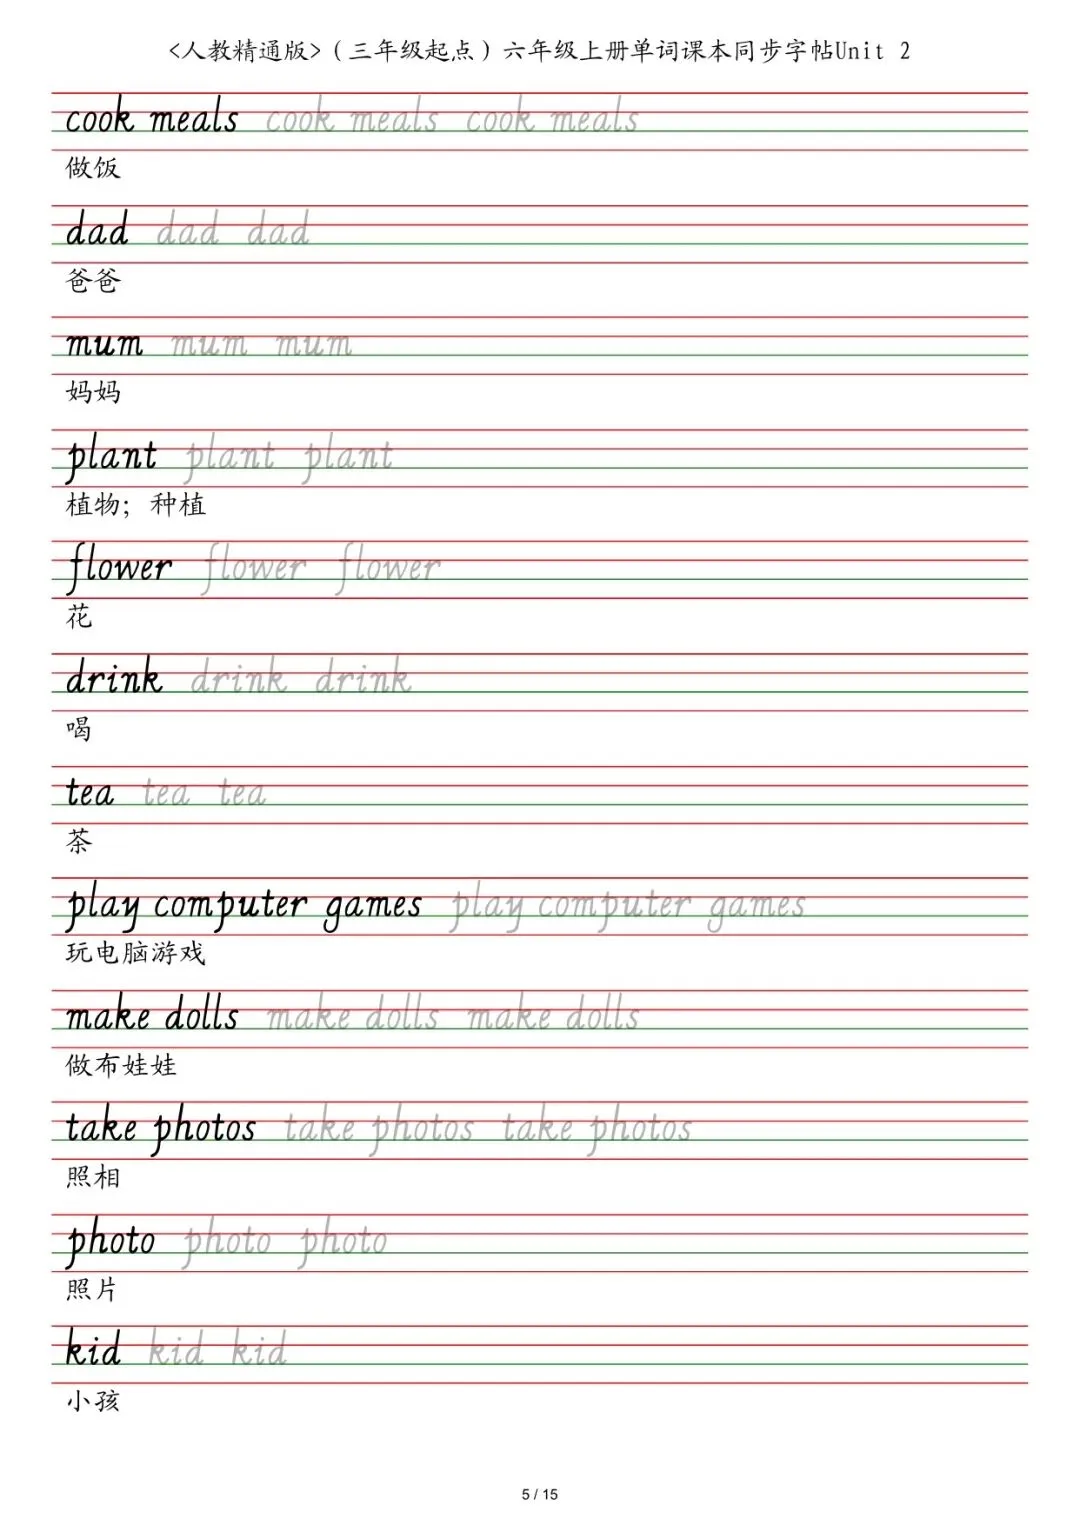 <人教精通版>(三年级起点)六年级上册单词课本同步字帖Unit 2
cook meals cook meals cook meals
做饭
dad dad dad
爸爸
mum mum mum
妈妈
plant plant plant
植物；种植
flower flower flower
花
drink drink drink
喝
tea tea tea
茶
play computer games play computer games
玩电脑游戏
make dolls make dolls make dolls
做布娃娃
take photos take photos take photos
照相
photo photo photo
照片
kid kid kid
小孩
5 / 15